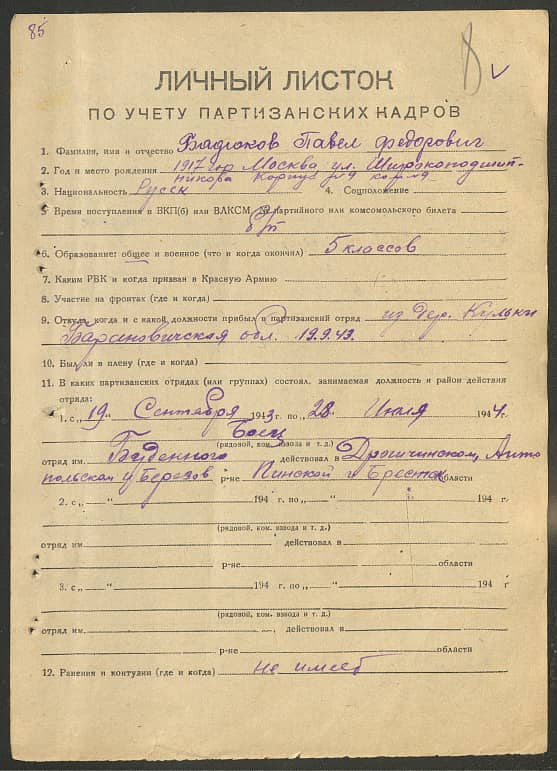 85
ЛИЧНЫЙ ЛИСТОК
ПО УЧЕТУ ПАРТИЗАНСКИХ КАДРОВ
1. Фамилия, имя и отчество Фадюков Павел Федорович
2. Год и место рождения 1917 год Москва ул. Широкоподшип-
никова Корпус № 9 ком 9
3. Национальность Русск 4. Соцположение
5 Время поступления в ВКП(б) или ВЛКСМ № партийного или комсомольского билета
б/п
6. Образование: общее и военное (что и когда окончил) 5 классов
7. Каким РВК и когда призван в Красную Армию
8. Участие на фронтах (где и когда)
9. Откуда, когда и с какой должности прибыл в партизанский отряд из дер. Кульки
Барановичская обл. 19.9.43.
10. Был ли в плену (где и когда)
11. В каких партизанских отрядах (или группах) состоял, занимаемая должность и район действия
отряда:
1. с „19“ Сентября 1943 г. по „28“ Июля 1944 г.
Боец
(рядовой, ком. взвода и т. д.)
отряд им. Буденного действовал в Дрогичинском, Анто
польском и Березов р-не Пинской и Брестск области
2. с „ “ 194 г. по „ “ 194 г.
(рядовой, ком. взвода и т. д.)
отряд им. действовал в
р-не области
3. с „ “ 194 г. по „ “ 194 г
(рядовой, ком. взвода и т. д.)
отряд им. , действовал в
р-не области
12. Ранения и контузии (где и когда) не имеет